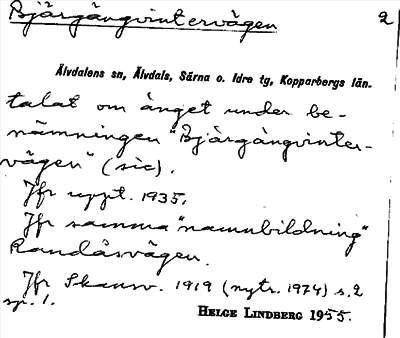 Bjärgångvintervägen 2
Älvdalens sn, Älvdals, Särna o. Idre tg, Kopparbergs län.
talat om änget under be-
nämningen "Bjärgångvinter-
vägen" (sic).
Jfr uppt. 1935.
Jfr samma "namnbildning"
Randåsvägen.
Jfr Skansv. 1919 (nytr. 1974) s. 2
sp. 1.
HELGE LINDBERG 1955.